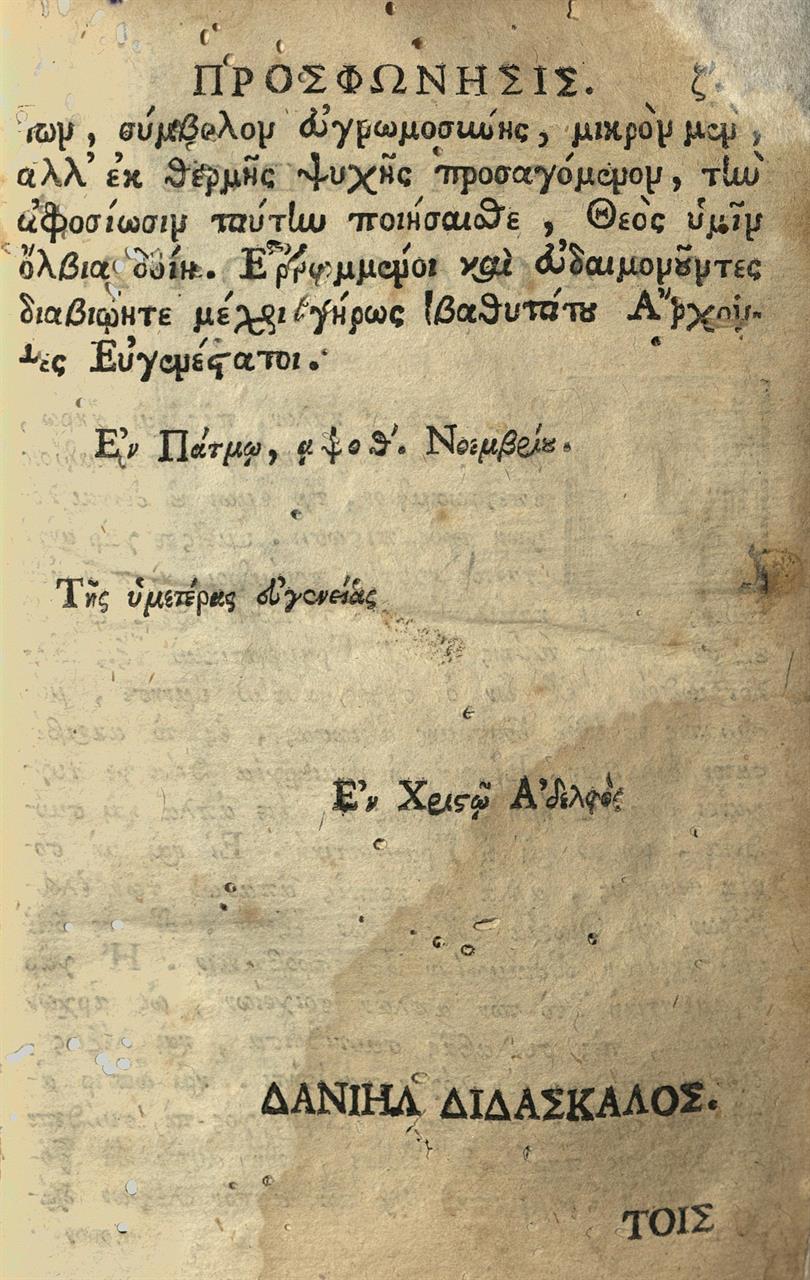 ΠΡΟΣΦΩΝΗΣΙΣ. ζ
των, σύμβολον εὐγνωμοσύνης, μικρὸν μὲν,
ἀλλ' ἐκ θερμῆς ψυχῆς προσαγόμενον, τὴν
ἀφοσίωσιν ταύτην ποιήσαισθε, Θεὸς ὑμῖν
ὄλβια δοίη. Ἐῤῥωμμένοι καὶ εὐδαιμονοῦντες
διαβιῴητε μέχρι γήρως βαθυτάτου Ἄρχον-
τες Εὐγενέςατοι.
Ἐν Πάτμῳ, αψοθ΄. Νοεμβρίου.
Τῆς ὑμετέρας εὐγενείας
Ἐν Χριςῷ Ἀδελφὸς
ΔΑΝΙΗΛ ΔΙΔΑΣΚΑΛΟΣ.
ΤΟΙΣ